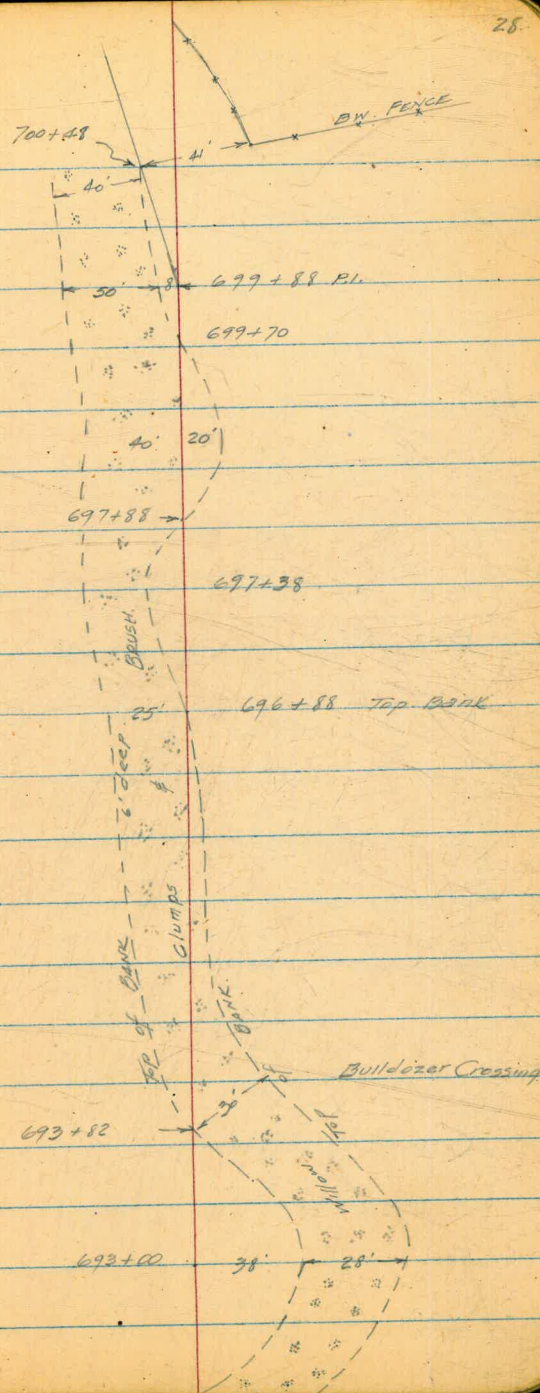 28
B.W. FENCE
700+48
41'
40'
50'
8
699+88 P.I.
699+70
40'
20'
697+88
697+38
BRUSH
25'
696+88 Top Bank
6' deep
&
Clumps
Top of BANK
Top of BANK
Bulldozer Crossing
30'
693+82
Willow
693+00
38'
28'